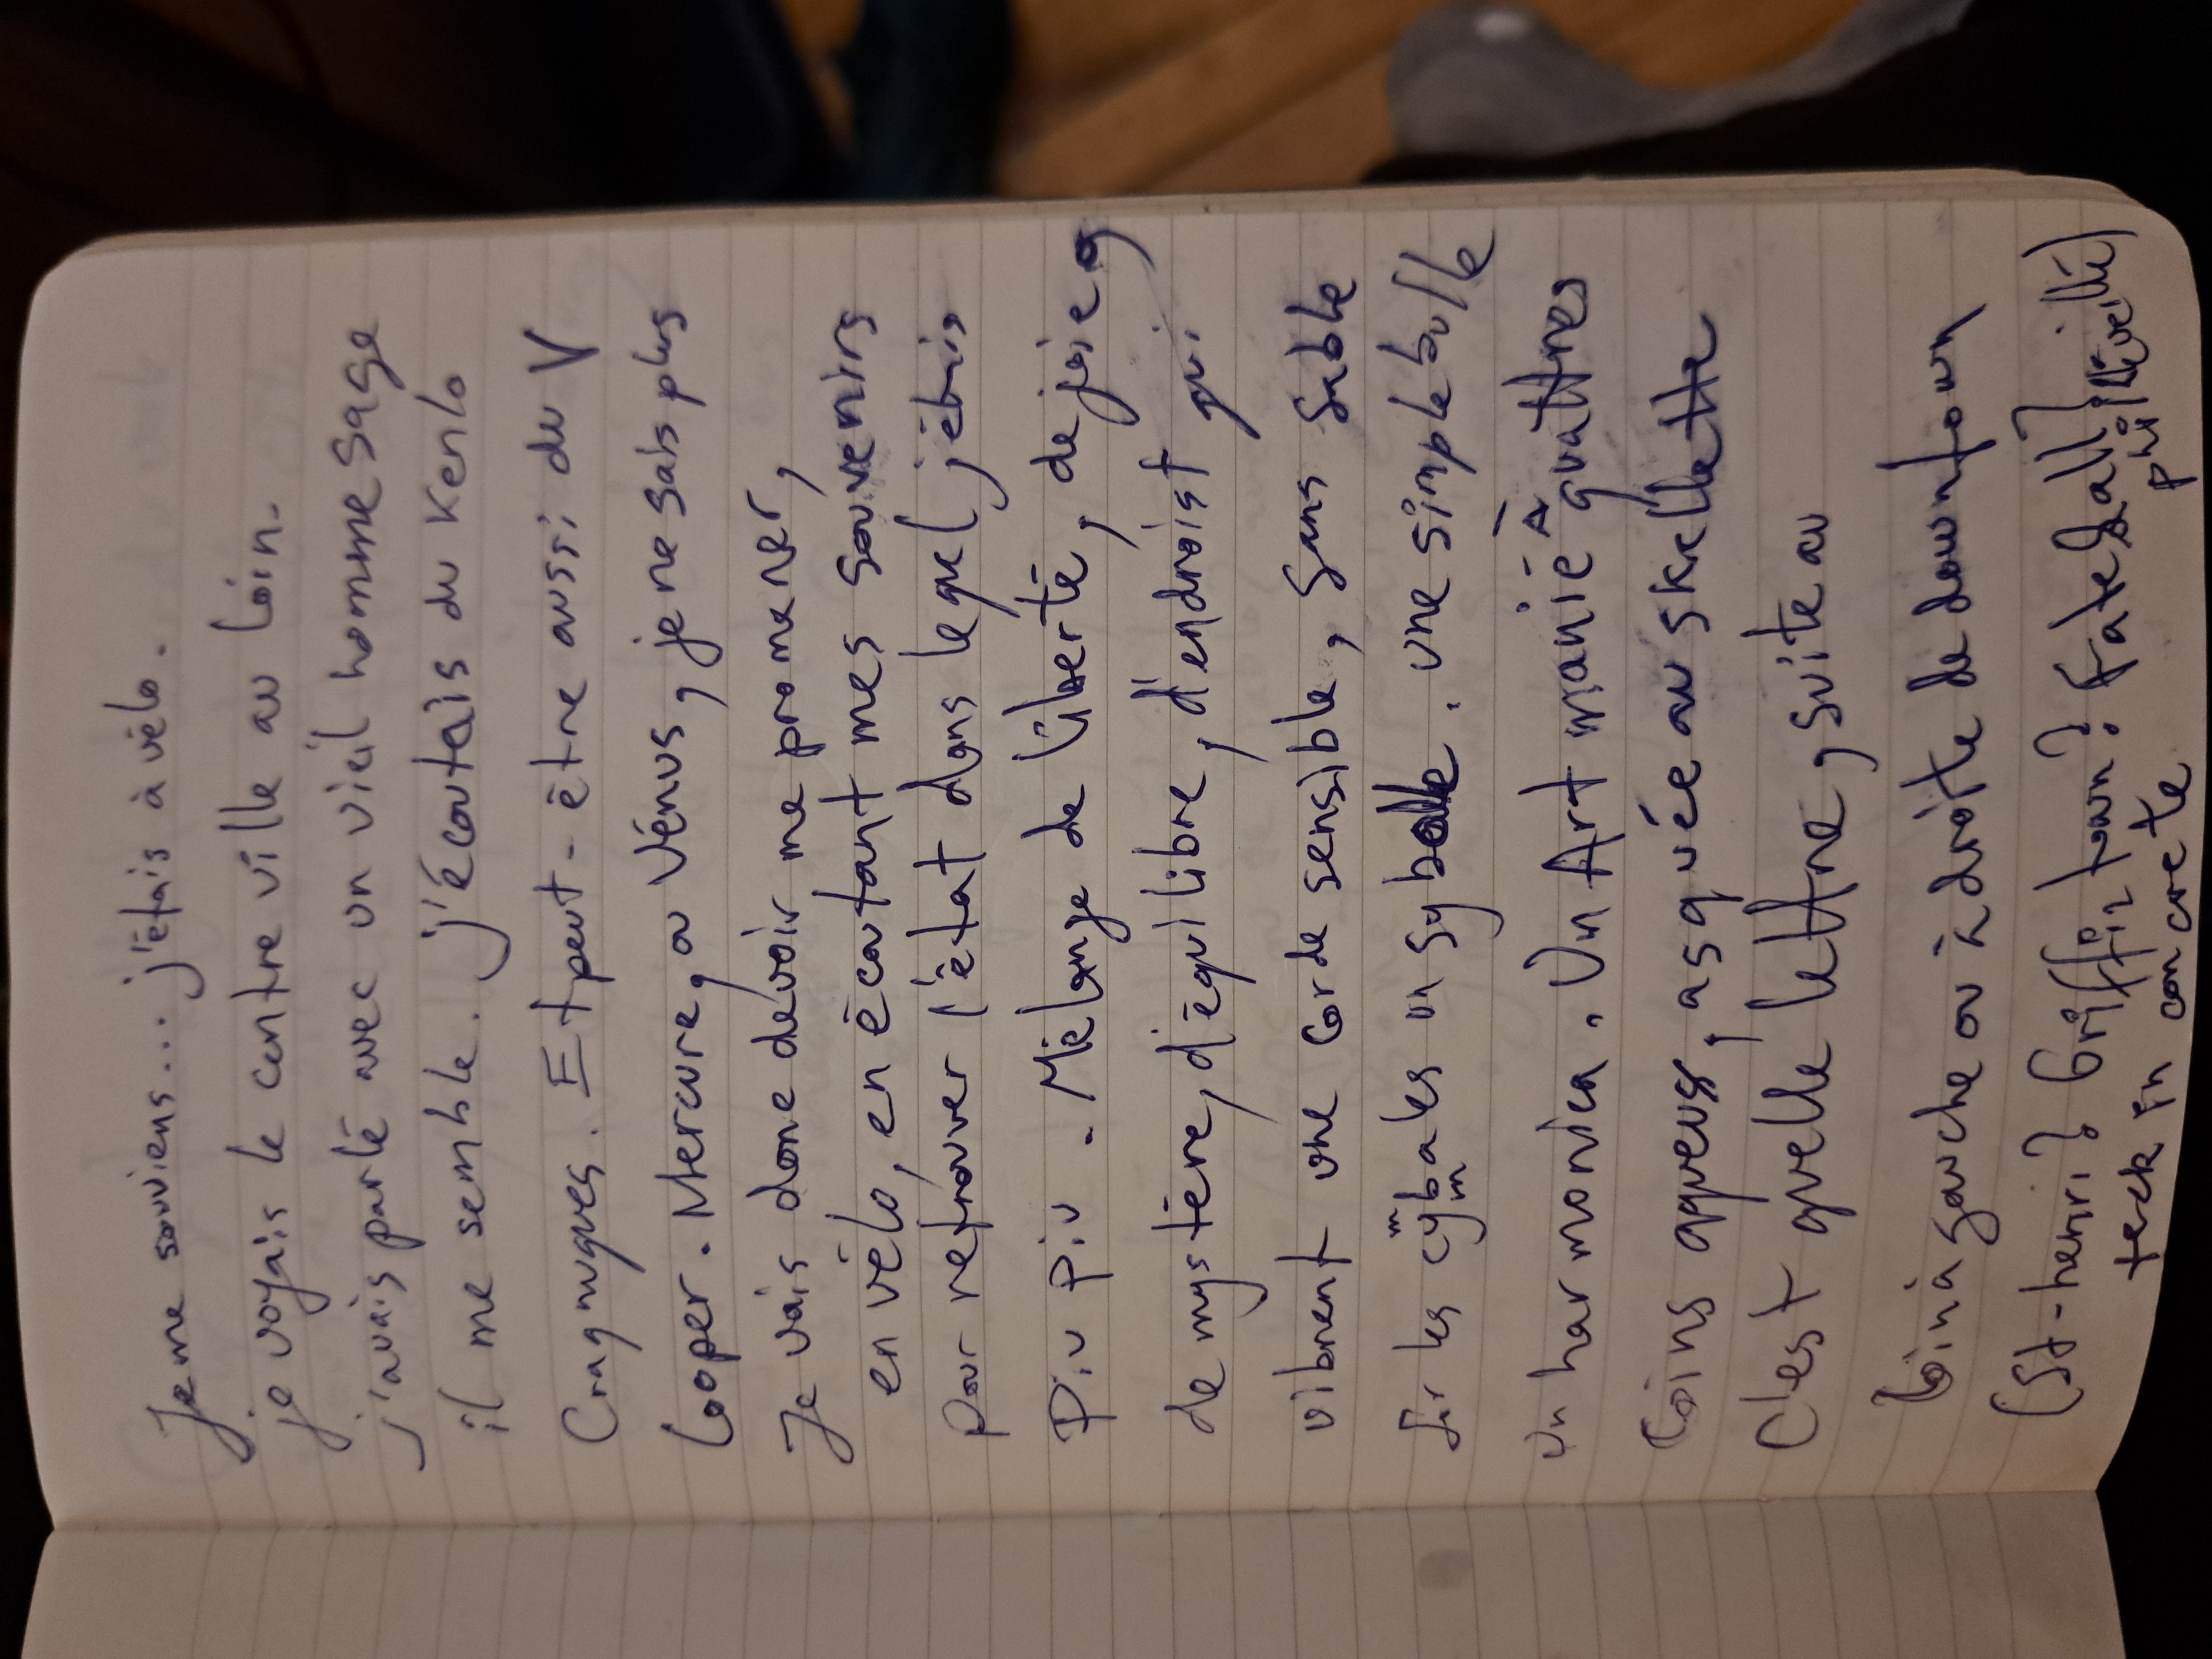 Je me souviens... j'étais à vélo.
je voyais le centre ville au loin.
j'avais parlé avec un vieil homme sage
il me semble. j'écoutais du Kenlo
Craqnuques. Et peut-être aussi du V
Cooper. Mercure, ou Vénus, je ne sais plus
Je vais donc devoir me promener,
en vélo, en écoutant mes souvenirs
pour retrouver l'état dans lequel j'étais
Piu Piu. Mélange de liberté, de joie
de mystère, d'équilibre, d'endroist qui
vibrent une corde sensible, sans sable
Sur les cymbales un sybolle. une simple bulle
un harmonica. Un Art manié à quattres
Coins aqueux, asquée au skellette
C'est quelle lettre, suite au
Coin à gauche ou à droite de downtown
(St-henri? Griffin town? fatedall?
teck in concrete